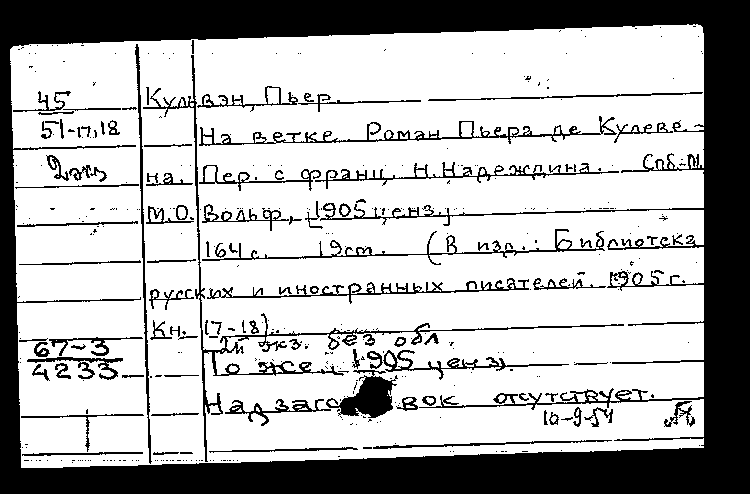 45 Кульвэн, Пьер.
51-17,18 На ветке. Роман Пьера де Кулеве-
2 экз на. Пер. с франц. Н. Надеждина. Спб.-М.
М.О. Вольф, [1905 ценз.]
164 с. 19 см. (В изд.: Библиотека
русских и иностранных писателей. 1905 г.
Кн. 17-18).
2й экз. без обл.
67-3 То же. [1905 ценз].
4233
Надзаго вок отсутствует.
10-9-54